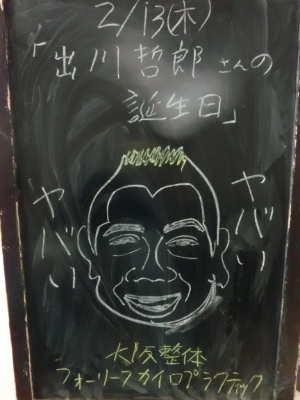 2/13(木)
「出川哲郎さんの
誕生日」
ヤバい
ヤバい
大阪整体
フォーリーフカイロプラクティック